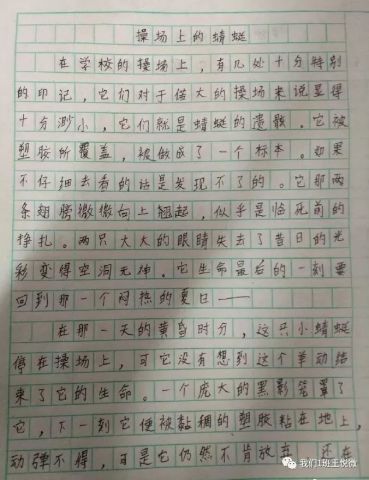 操场上的蜻蜓
在学校的操场上，有几处十分特别
的印记，它们对于偌大的操场来说显得
十分渺小，它们就是蜻蜓的遗骸。它被
塑胶所覆盖，被做成了一个标本。如果
不仔细去看的话是发现不了的。它那两
条翅膀微微向上翘起，似乎是临死前的
挣扎。两只大大的眼睛失去了昔日的光
彩变得空洞无神。它生命最后的一刻要
回到那一个闷热的夏日——
在那一天的黄昏时分，这只小蜻蜓
停在操场上，可它没有想到这个举动结
束了它的生命。一个庞大的黑影笼罩了
它，下一刻它便被黏稠的塑胶粘在地上，
动弹不得，可是它仍然不肯放弃，还在
我们1班王悦微